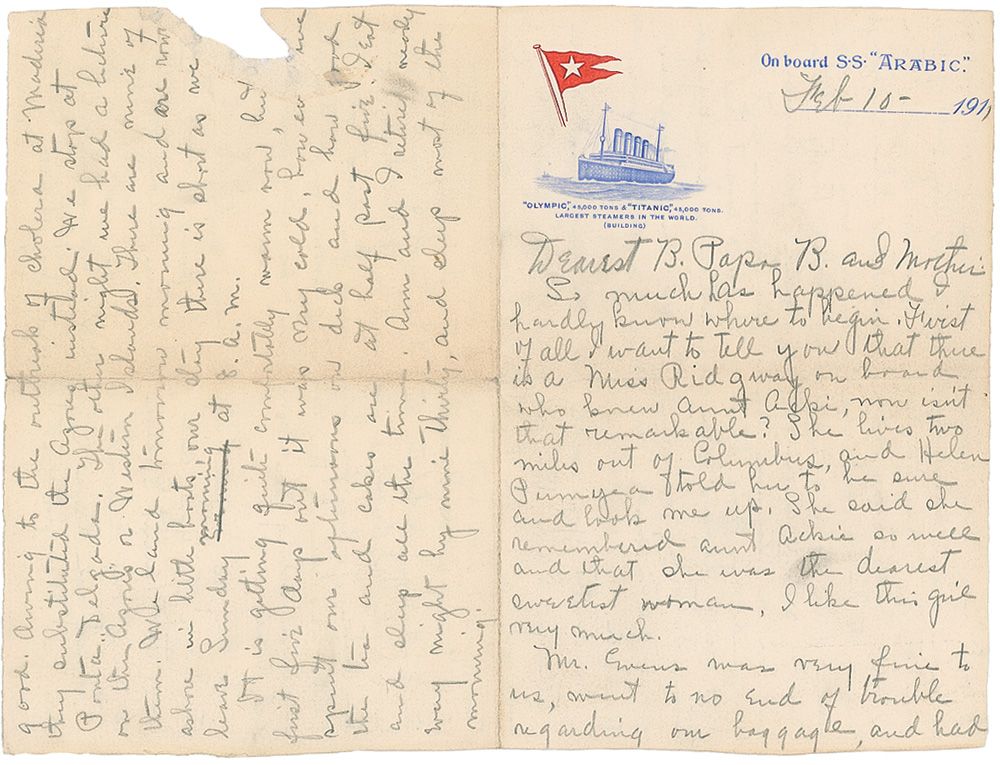 On board S.S. "ARABIC."
Feb 10- 1911
"OLYMPIC," 45,000 TONS & "TITANIC," 45,000 TONS.
LARGEST STEAMERS IN THE WORLD.
(BUILDING)
Dearest B. Papa B. and Mother
So much has happened I
hardly know where to begin. First
of all I want to tell you that there
is a Miss Ridgway on board
who knew aunt Ackie, now isn't
that remarkable? She lives two
miles out of Columbus, and Helen
told her to be sure
and look me up. She said she
remembered aunt Ackie so well
and that she was the dearest
sweetest woman, I like this girl
very much.
Mr. Evens was very fine to
us, went to no end of trouble
regarding our baggage, and had
good. Owing to the outbreak of cholera at Maderia
they substituted the Azores instead. We stop at
Ponta Delgada. The other night we had a lecture
on the Azores or Western Islands. There are nine of
them. We land tomorrow morning and are row
ashore in little boats, our stay there is short as we
leave Sunday morning at 8. a.m.
It is getting quite comfortably warm now, but
first five days out it was very cold, however we
spent our afternoons on deck and how good
the tea and cakes are at half past five. I eat
and sleep all the time. Ann and I retire nearly
every night by nine thirty, and sleep most of the
morning.